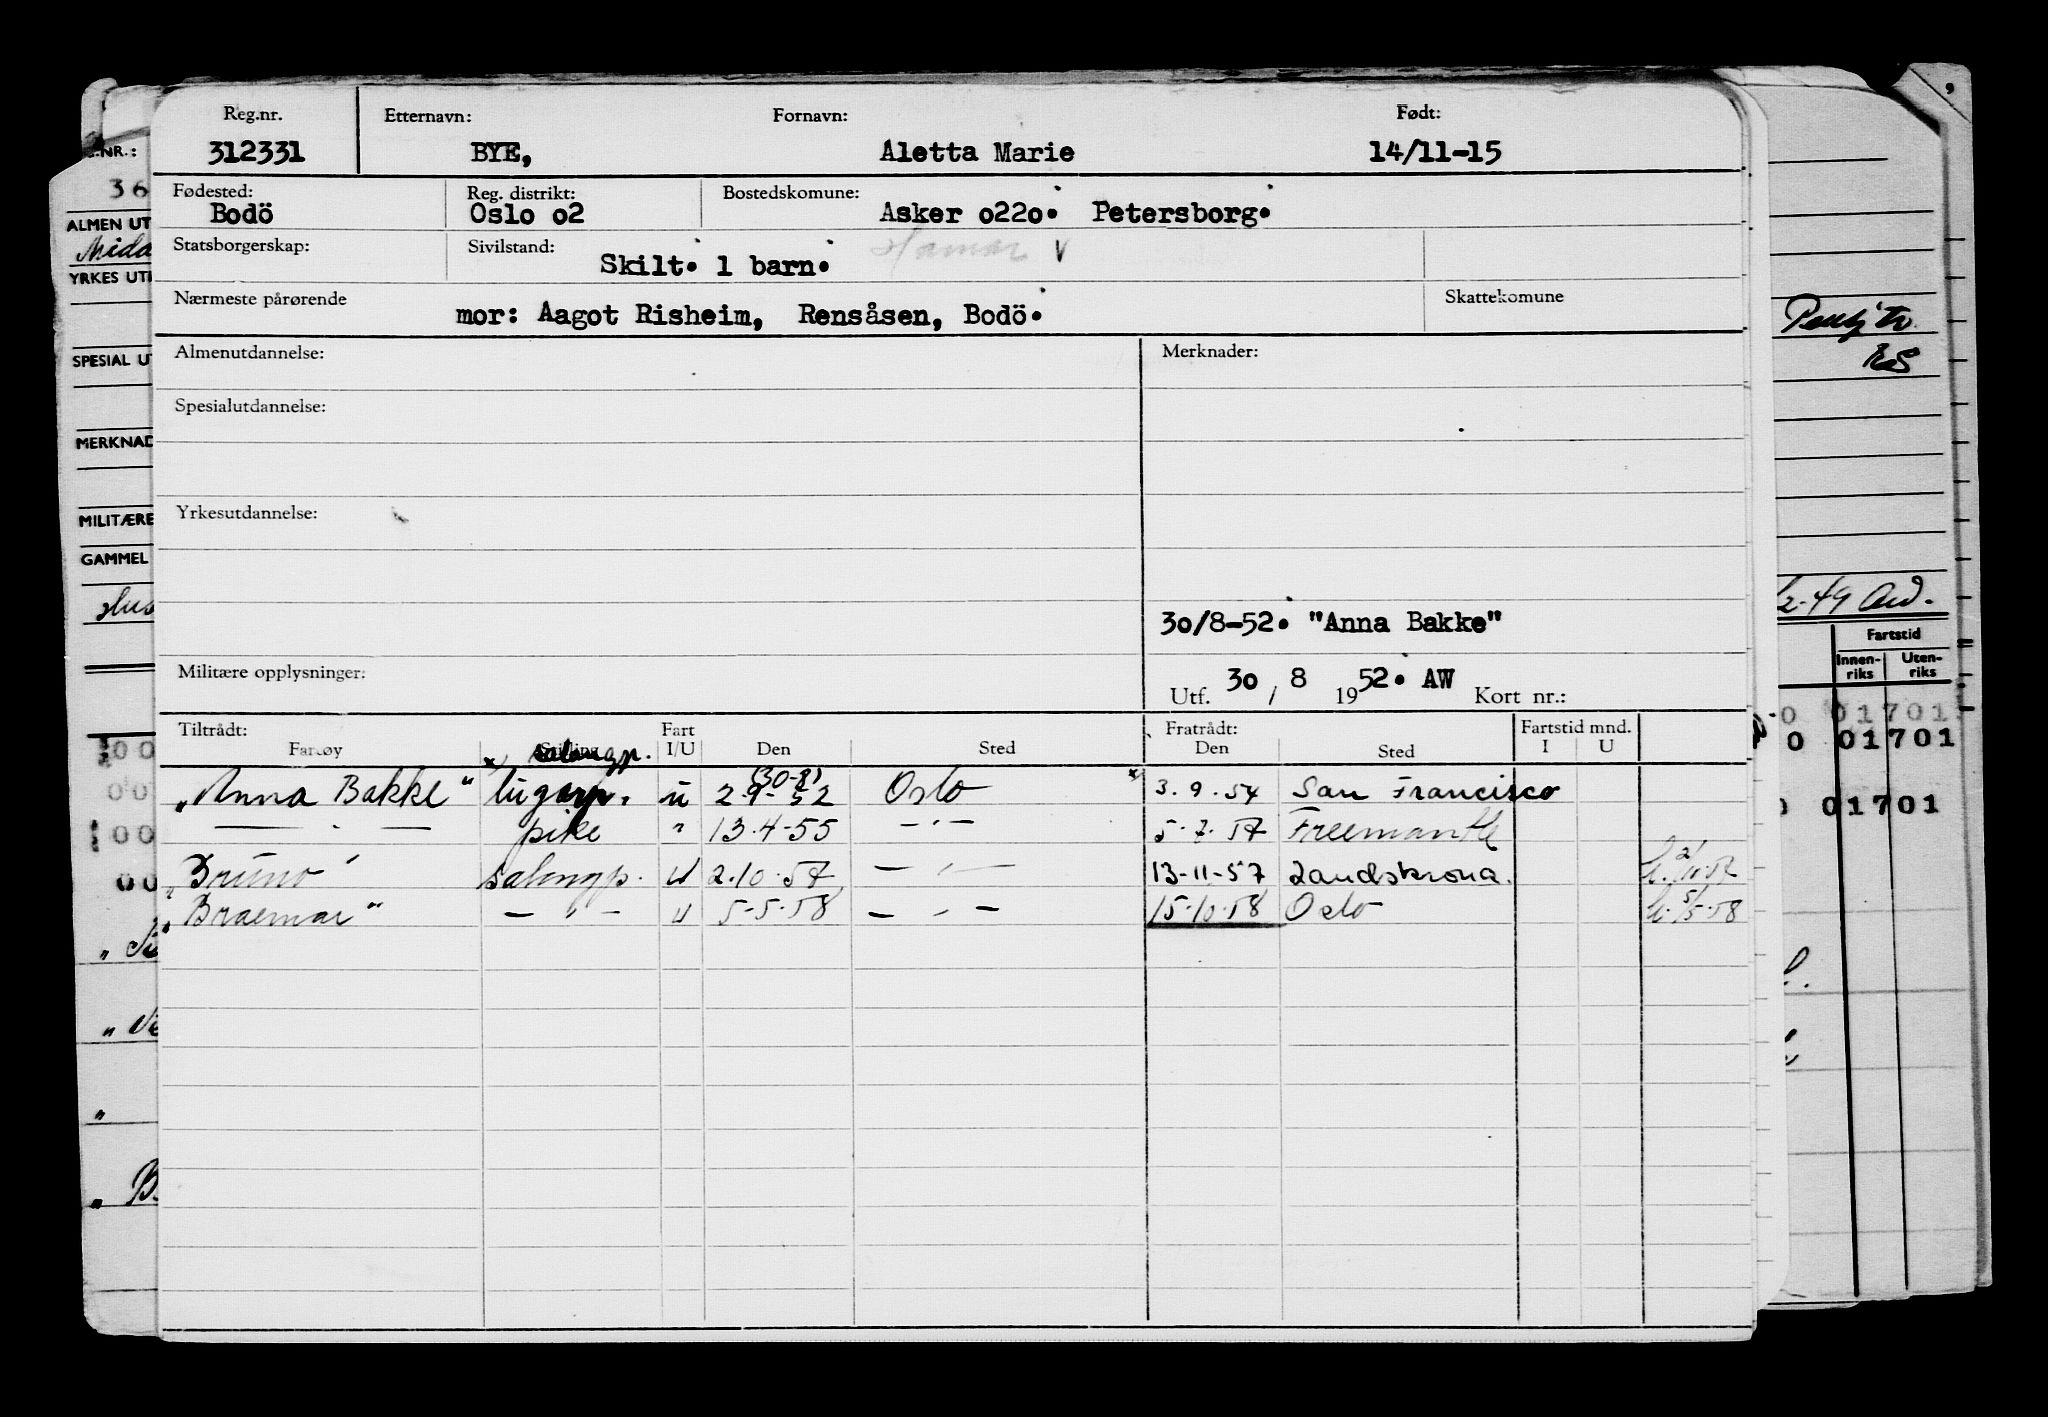 Reg.nr. Etternavn: Fornavn: Født:
312331 BYE, Aletta Marie 14/11-15
Fødested: Reg. distrikt: Bostedskomune:
Bodö Oslo o2 Asker o22o. Petersborg.
Statsborgerskap: Sivilstand: Skilt. 1 barn. Hamar V
Nærmeste pårørende Skattekomune
mor: Aagot Risheim, Rensåsen, Bodö.
Almenutdannelse: Merknader:
Spesialutdannelse:
Yrkesutdannelse:
30/8-52. "Anna Bakke"
Militære opplysninger: Utf. 30 / 8 1952. AW Kort nr.:
Tiltrådt: Fart Fratrådt: Fartstid mnd.
Fartøy Stilling I/U Den Sted Den Sted I U
x) salongp.
(30-8)
„Anna Bakke" lugarp. u 2-9-52 Oslo x 3.9.54 San Francisco
— " — pike " 13.4-55 — " — 5.7.57 Freemantle
"Bruno" salongp. U 2.10.57 — " — 13-11-57 Landskrona.
„Braemar" — " — U 5-5-58 — " — 15.10.58 Oslo
.NR.:
36
ALMEN UT
YRKES UT
SPESIAL U
MERKNAD
MILITÆRE
GAMMEL
Hus
-49
Fartstid
Innen-riks Uten-riks
0 01701
0 01701
01701